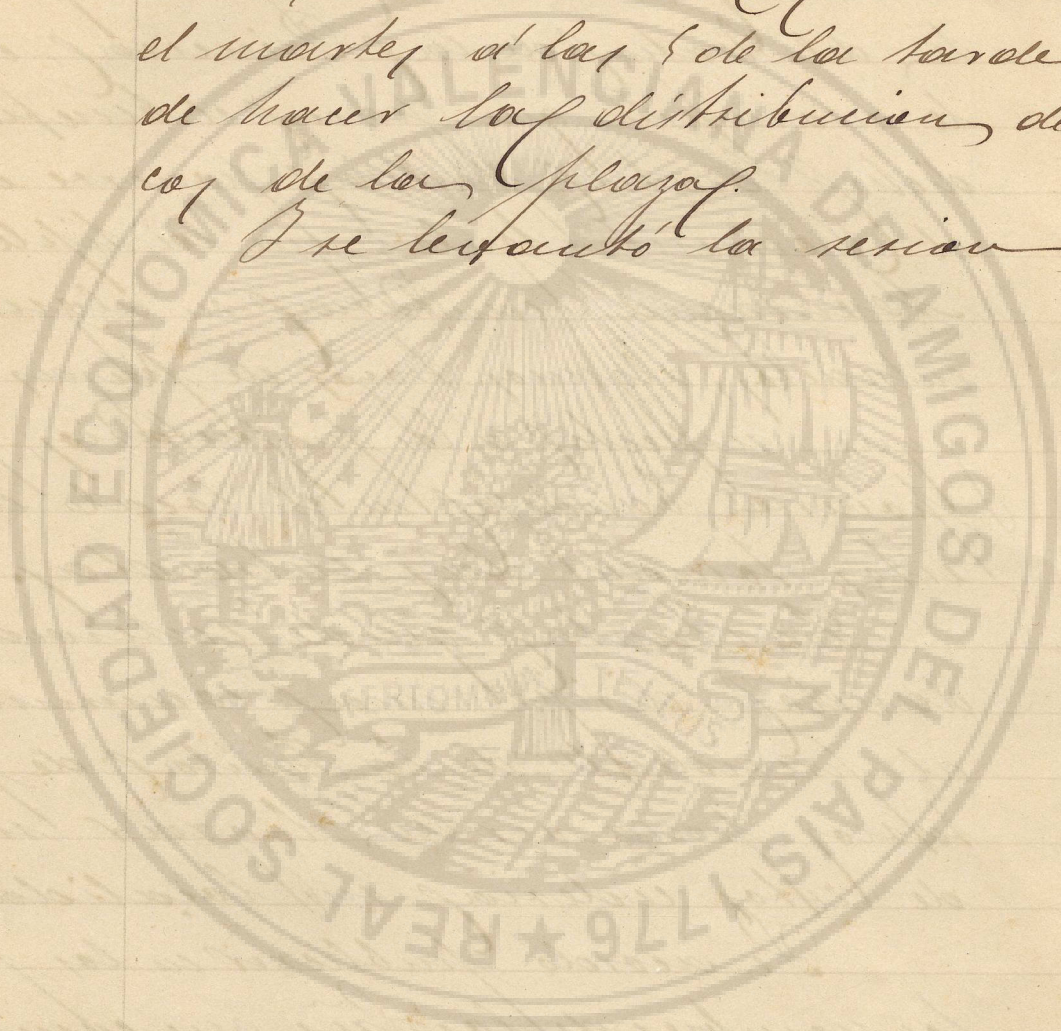 el martes á las 5 de la tarde
de hacer la distribucion de
cos de la plaza.
Y se levantó la sesion
REAL SOCIEDAD ECONOMICA VALENCIANA DE AMIGOS DEL PAÍS 1776 ★
FERT OMNIA TELLUS